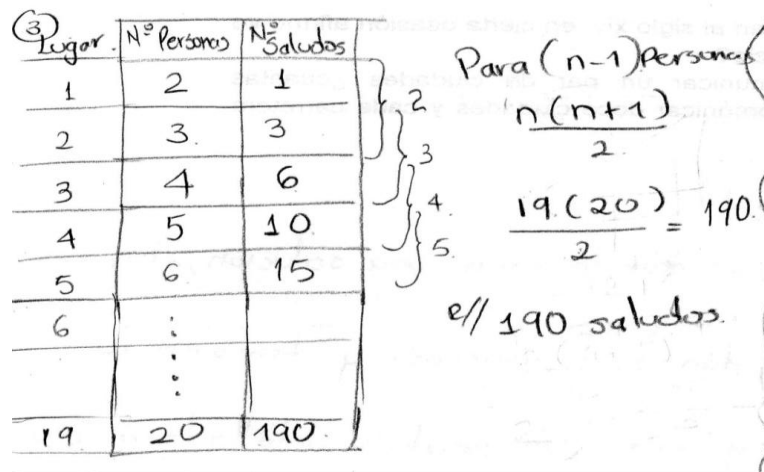 ③
Lugar. | Nº Personas | Nº Saludos
1 | 2 | 1
2 | 3. | 3
3 | 4 | 6
4 | 5 | 10
5 | 6 | 15
6 | ⋮ |
19 | 20 | 190.
2
3
4.
5
Para (n-1) Personas
n(n+1)
2.
19.(20) = 190.
2
R// 190 saludos.